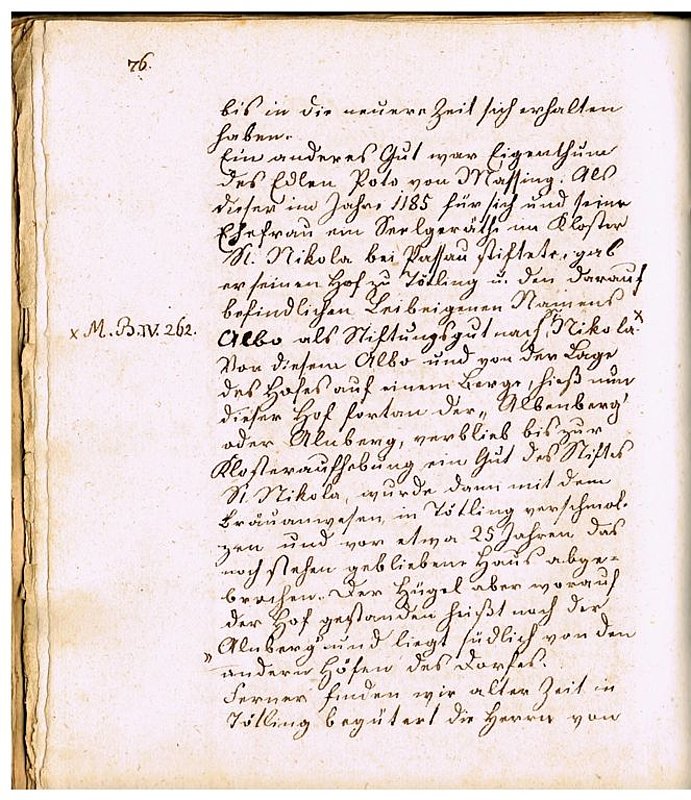 76.
bis in die neuere Zeit sich erhalten
haben.
Ein anderes Gut war Eigenthum
des Edlen Poto von Massing. Als
dieser im Jahre 1185 für sich und seine
Ehefrau ein Seelgeräthe im Kloster
St. Nikola bei Passau stiftete, gab
er seinen Hof zu Tötling u. den darauf
befindlichen Leibeigenen Namens
x M. B. IV. 262.
Albo als Stiftungsgut nach Nikola.x
Von diesem Albo und von der Lage
des Hofes auf einem Berge, hieß nun
dieser Hof fortan der „Albenberg"
oder Alnberg, verblieb bis zur
Klosteraufhebung ein Gut des Stiftes
St. Nikola, wurde dann mit dem
Bräuanwesen in Tötling verschmol-
zen und vor etwa 25 Jahren das
noch stehen gebliebene Haus abge-
brochen. Der Hügel aber worauf
der Hof gestanden heißt noch der
„Alnberg" und liegt südlich von den
andern Höfen des Dorfes.
Ferner finden wir alter Zeit in
Tötling begütert die Herrn von